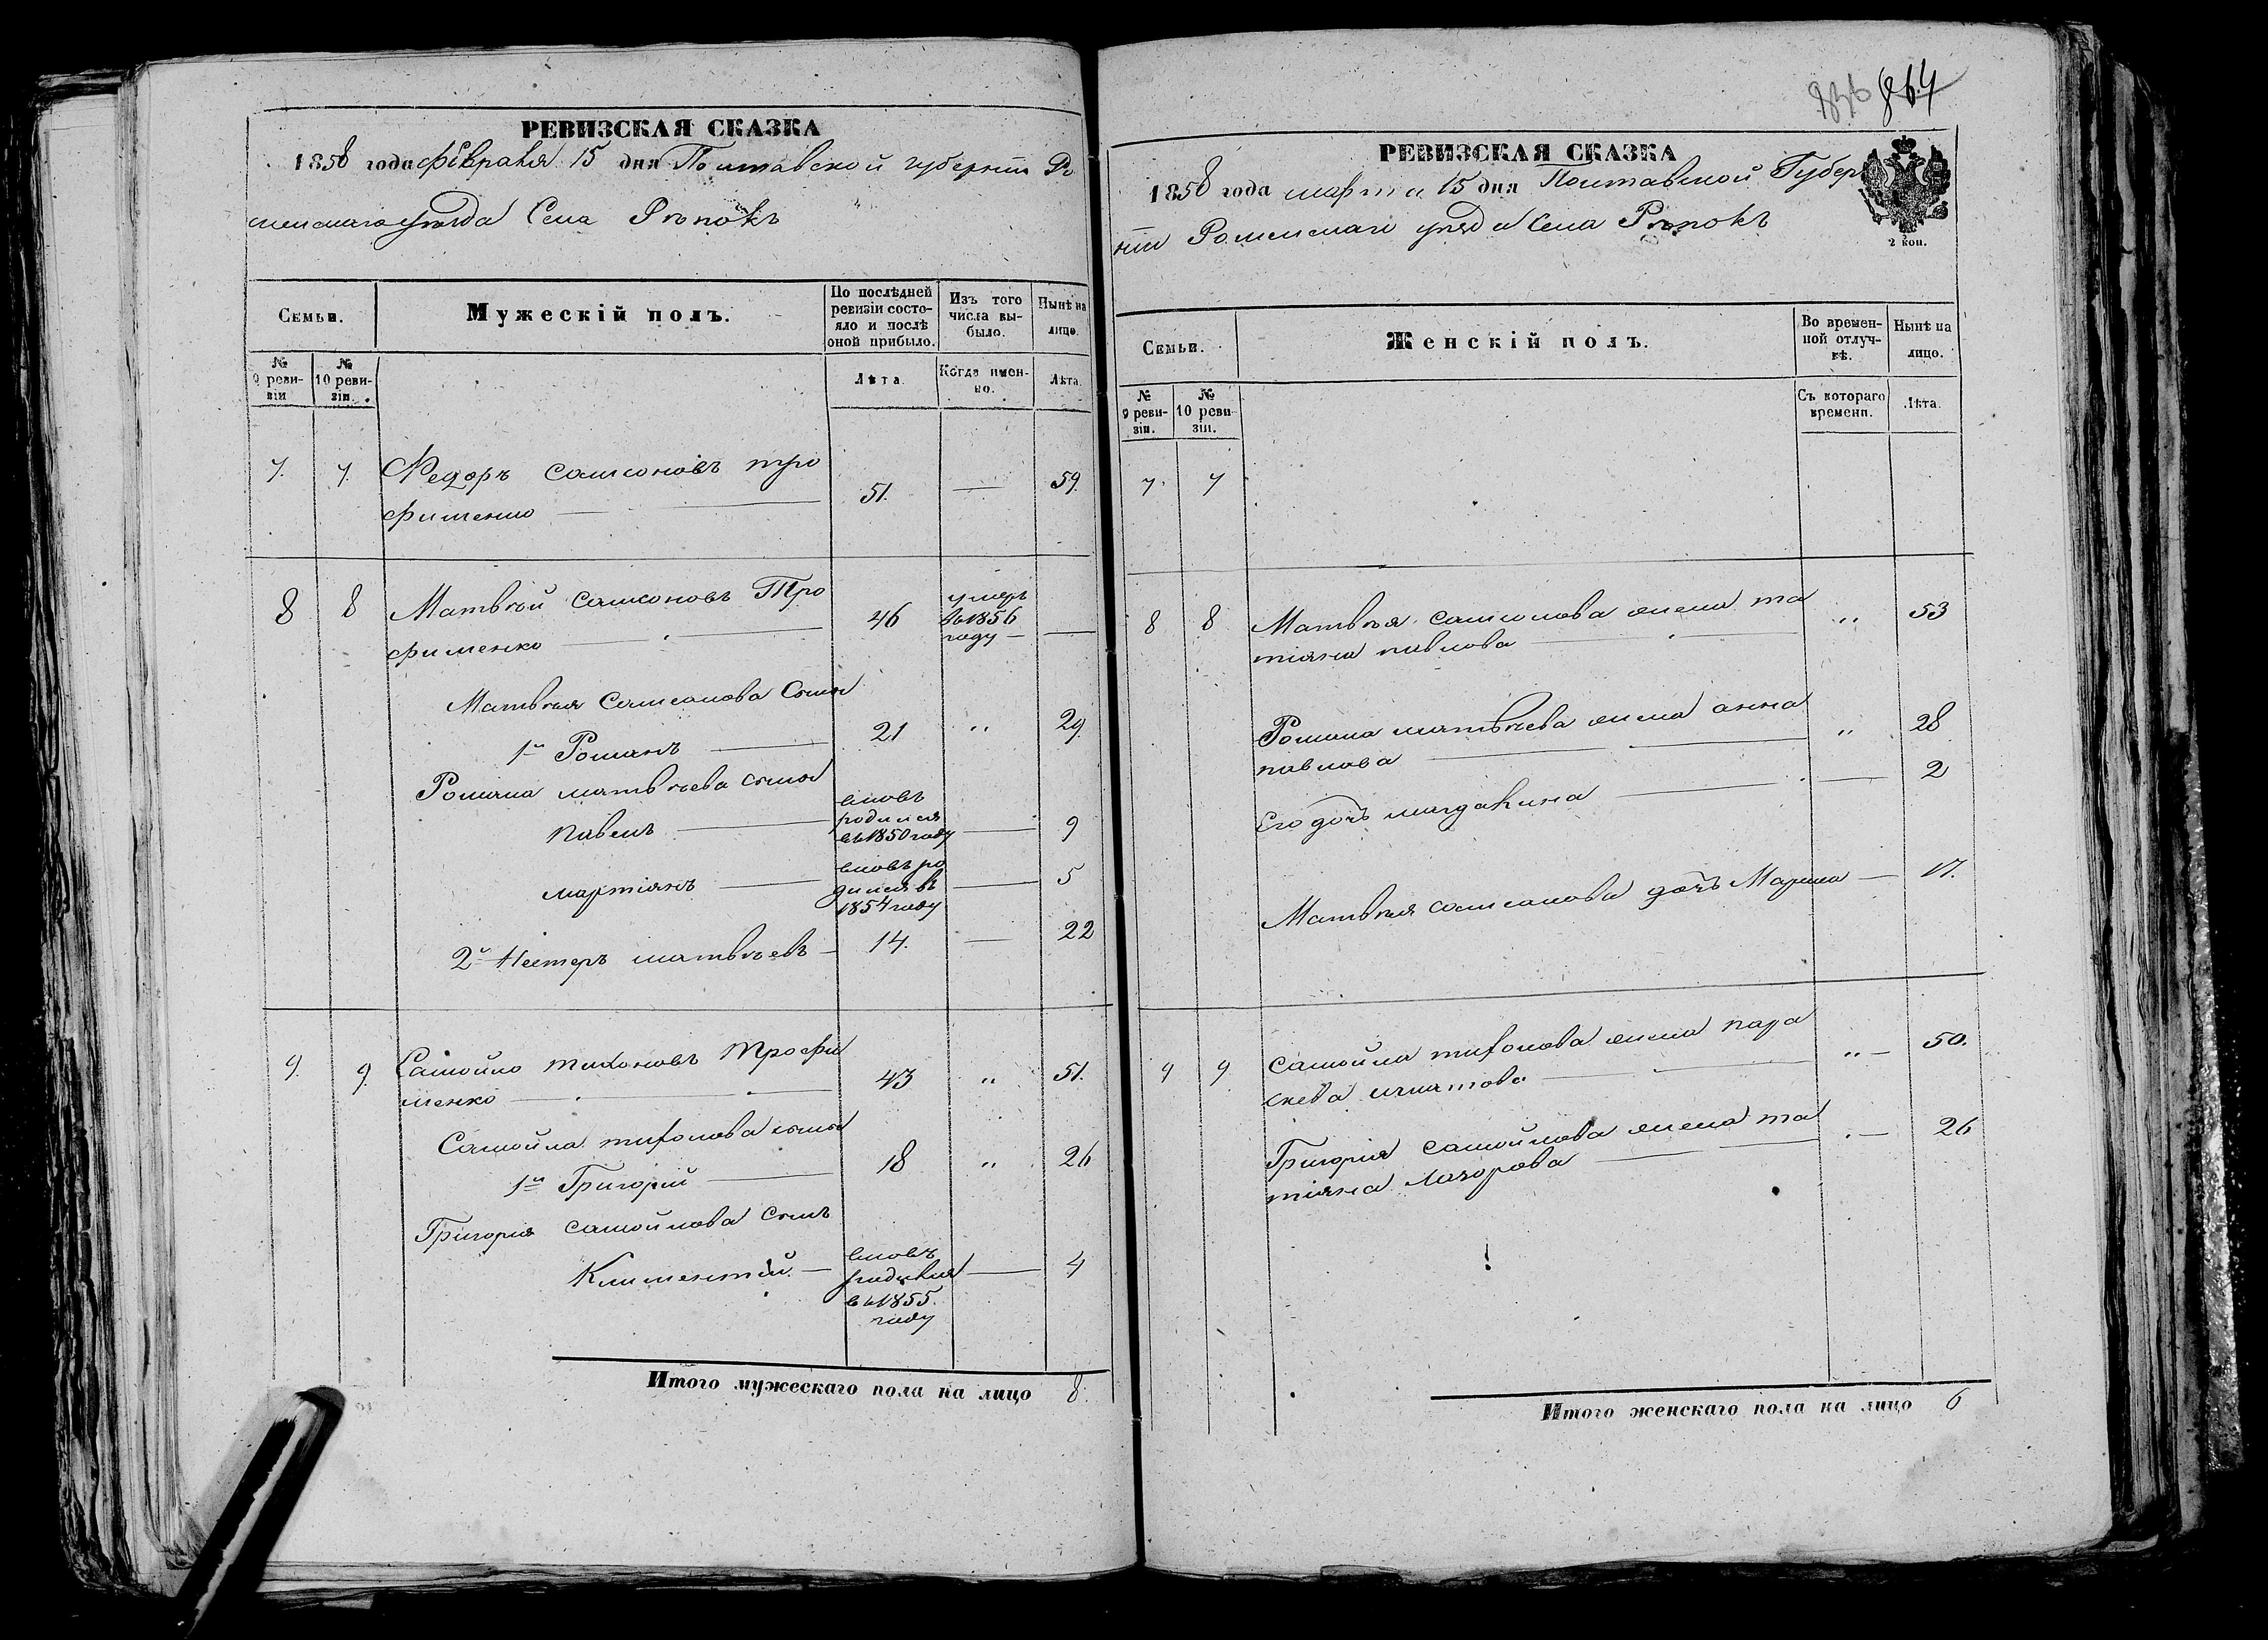 РЕВИЗСКАЯ СКАЗКА
1858 года февраля 15 дня Полтавской губернии Ро
менскаго уѣзда Села Рѣпокъ
Семьи.
Мужескій полъ.
По послѣдней ревизіи состояло и послѣ оной прибыло.
Изъ того числа выбыло.
Нынѣ на лицо.
№ 9 ревизіи
№ 10 ревизіи.
Лѣта.
Когда именно.
Лѣта.
7. 7. Федоръ Самсоновъ тро 51. — 59.
фименко —
8 8 Матвѣй Самсоновъ Тро 46 умеръ въ 1856 году — —
фименко —
Матвѣя Самсонова сыны
1й Романъ — 21 " 29.
Романа матвѣева сыны
павелъ — вновь родился въ 1850 году — 9
мартіянъ — вновь родился въ 1854 году — 5
2й Нестеръ матвѣевъ — 14. — 22
9. 9. Самойло тихоновъ Трофи 43 " 51.
менко —
Самойла тихонова сыны
1й Григорій — 18 " 26
Григорія самойлова сынъ
Климентій. — вновь родился въ 1855 году — 4
Итого мужескаго пола на лицо 8.
836 864
РЕВИЗСКАЯ СКАЗКА
1858 года марта 15 дня Полтавской Губер
ніи Роменскаго уѣзда Села Рѣпокъ
2 коп.
Семьи.
Женскій полъ.
Во временной отлучкѣ.
Нынѣ на лицо.
№ 9 ревизіи.
№ 10 ревизіи.
Съ котораго времени.
Лѣта.
7. 7
8 8 Матвѣя самсонова жена та " 53
тіяна павлова —
Романа матвѣева жена анна " 28
павлова —
Его дочь магдалина — — 2
Матвѣя самсонова дочь Марина — 17.
9 9 Самойла тихонова жена пара " — 50.
скева игнатова —
Григорія самойлова жена та — 26
тіяна лазорова —
Итого женскаго пола на лицо 6